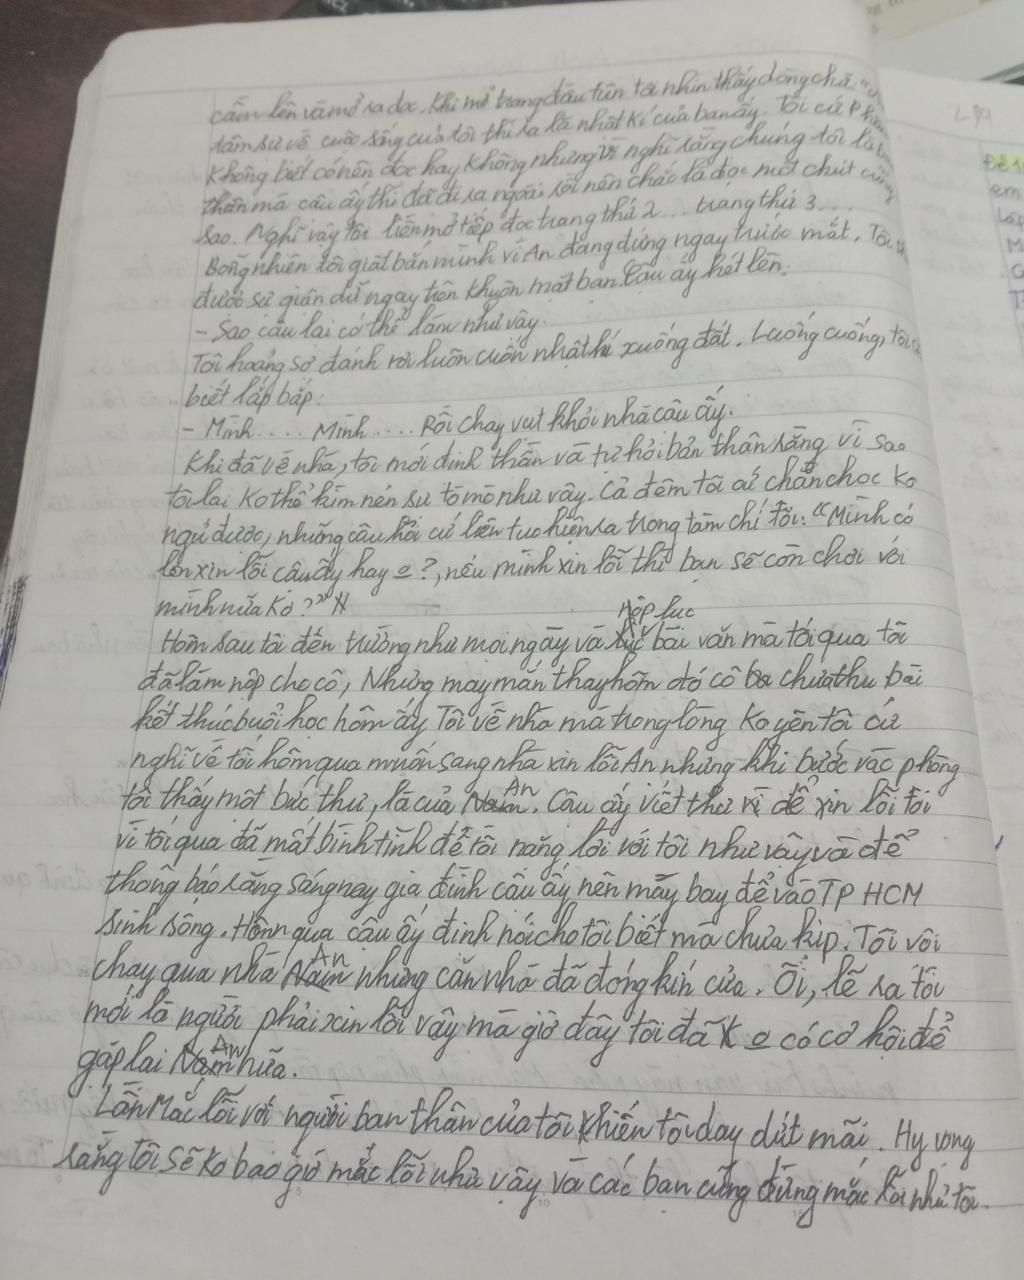 cầm lên và mở ra đọc. Khi mở trang đầu tiên tôi nhìn thấy dòng chữ
tâm sự về cuộc sống của tôi thì ra là nhật kí của bạn ấy. Tôi cứ
không biết có nên đọc hay không nhưng vì nghĩ rằng chúng tôi là
thân mà cậu ấy thì đã đi ra ngoài rồi nên chắc là đọc một chút cũng
sao. Nghĩ vậy tôi liền mở tiếp đọc trang thứ 2... trang thứ 3...
Bỗng nhiên tôi giật bắn mình vì An đang đứng ngay trước mắt. Tôi
được sự giận dữ ngay trên khuôn mặt bạn. Cậu ấy hét lên:
- Sao cậu lại có thể làm như vậy.
Tôi hoảng sợ đánh rơi luôn cuốn nhật kí xuống đất. Luống cuống, tôi
biết lắp bắp:
- Mình.... Mình.... Rồi chạy vụt khỏi nhà cậu ấy.
Khi đã về nhà, tôi mới định thần và tự hỏi bản thân rằng vì sao
tôi lại ko thể kìm nén sự tò mò như vậy. Cả đêm tôi cứ chằn chọc ko
ngủ được, những câu hỏi cứ liên tục hiện ra trong tâm chí tôi: "Mình có
lên xin lỗi cậu ấy hay o?, nếu mình xin lỗi thì bạn sẽ còn chơi với
mình nữa ko?"
nộp lục
Hôm sau tôi đến trường như mọi ngày và bài văn mà tối qua tôi
đã làm nộp cho cô, Nhưng may mắn thay hôm đó cô chưa thu bài
kết thúc buổi học hôm ấy Tôi về nhà mà trong lòng ko yên tôi cứ
nghĩ về tối hôm qua muốn sang nhà xin lỗi An nhưng khi bước vào phòng
tôi thấy một bức thư, là của An. Cậu ấy viết thư để xin lỗi tôi
vì tối qua đã mất bình tĩnh để tôi nặng lời với tôi như vậy và để
thông báo rằng sáng nay gia đình cậu ấy nên máy bay để vào TP HCM
sinh sống. Hôm qua cậu ấy định nói cho tôi biết mà chưa kịp. Tôi vội
chạy qua nhà An nhưng căn nhà đã đóng kín cửa. Ôi, lẽ ra tôi
mới là người phải xin lỗi vậy mà giờ đây tôi đã o có cơ hội để
gặp lại An nữa.
Lần mắc lỗi với người bạn thân của tôi khiến tôi day dứt mãi. Hy vọng
rằng tôi sẽ ko bao giờ mắc lỗi như vậy và các bạn cũng đừng mắc lỗi như tôi.